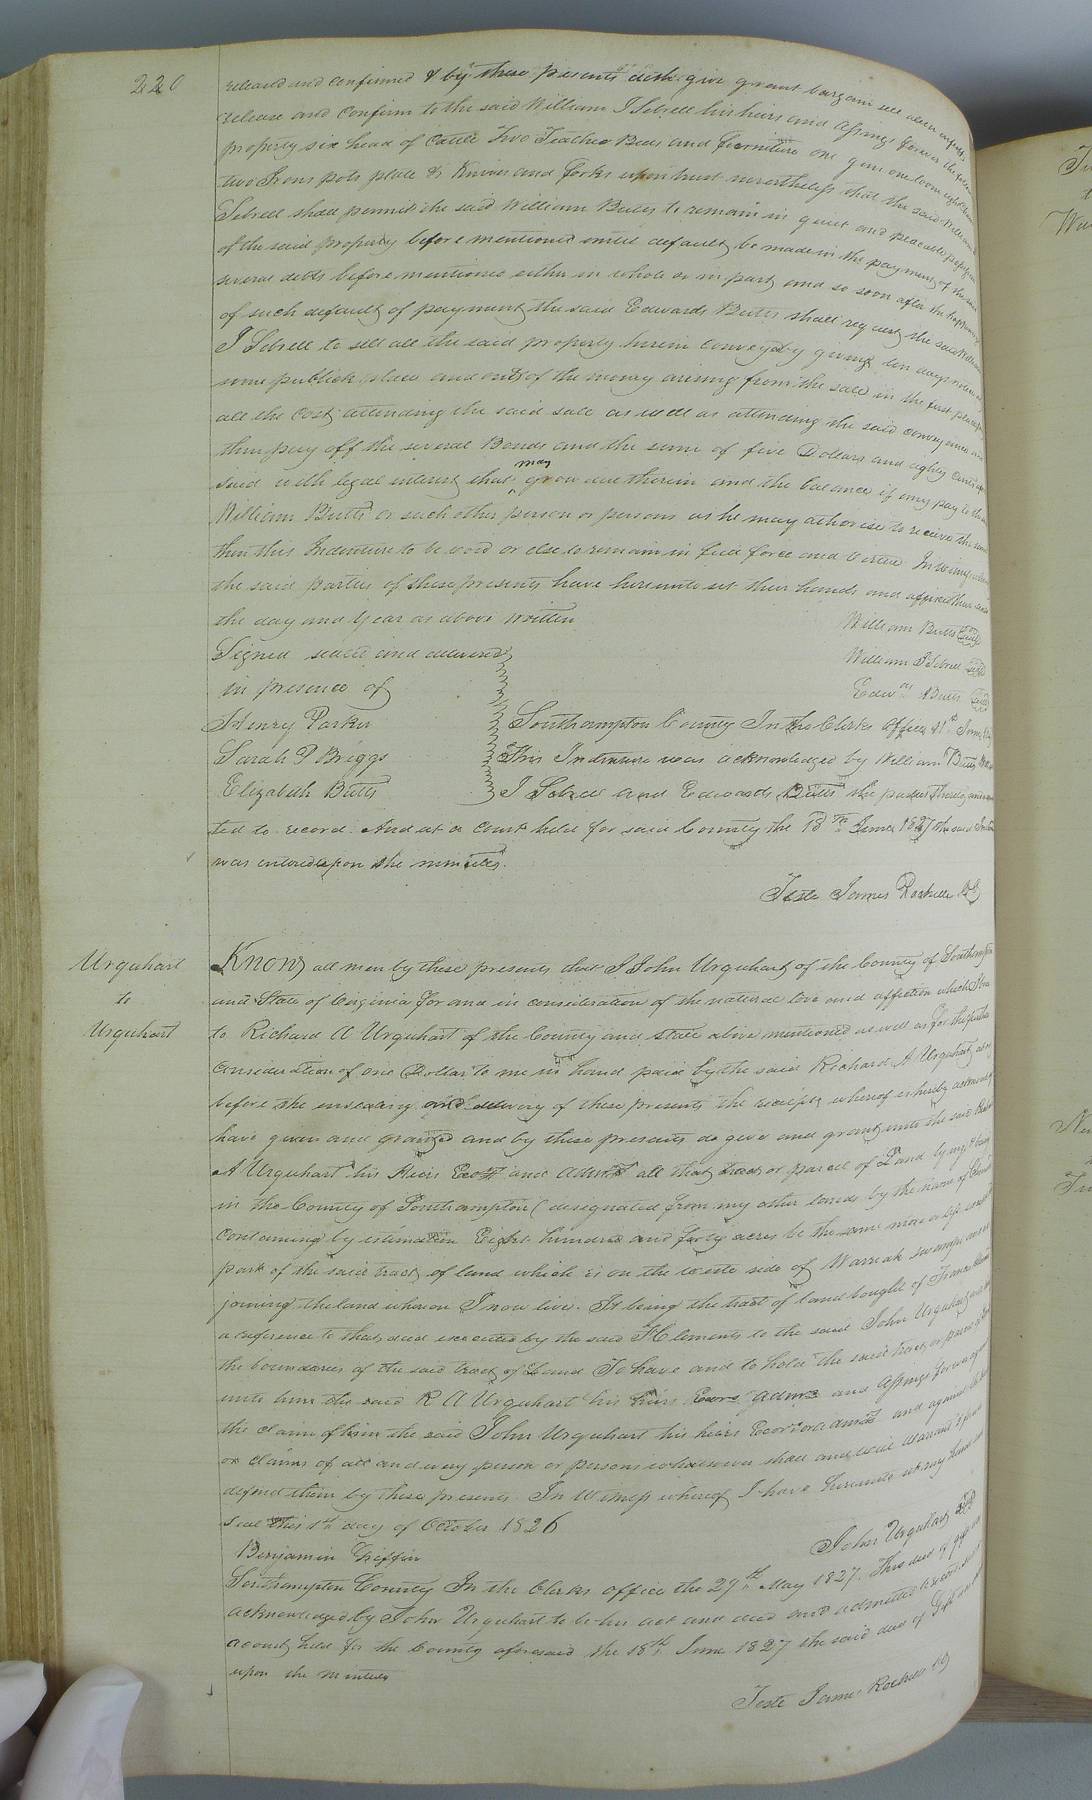 220
released and confirmed & by these presents doth give grant bargain sell alien
release and confirm to the said William I Sebrell his heirs and Assings forever the
property six head of Cattle Two Feather Beds and furniture one gun one loom
two Irons pots plate & Knives and forks upon trust nevertheless that the said William
Sebrell shall permit the said William Butts to remain in quiet and peaceable possession
of the said property before mentioned until default be made in the payment of the said
several debts before mentioned either in whole or in part and so soon after the happening
of such default of payment the said Edwards Butts shall request the said William
I Sebrell to sell all the said property herein conveyed by giving ten days notice
some publick place and out of the money arising from the sale in the first place
all the Cost attending the said sale as well as attending the said conveyance and
then pay off the several Bonds and the sum of five Dollars and eighty cents
said with legal interest that may grow due therein and the balance if any pay to the
William Butts or such other person or persons as he may athorise to receive the same
then this Indenture to be void or else to remain in full force and virtue. In witness
the said parties of these presents have hereunto set their hands and affixed their seals
the day and year as above written
William Butts Seal
Signed sealed and delivered
William I Sebrell Seal
in presence of
Edwds Butts Seal
Henry Parker
Southampton County In the Clerks office 11th June
Sarah P Briggs
This Indenture was acknowledged by William Butts
Elizabeth Butts
I Sebrell and Edwards Butts the parties thereto
ted to record. And at a Court held for said County the 18th June 1827 the said
was entered upon the minutes.
Teste James Rochelle
Urquhart
to
Urquhart
Know all men by these presents that I John Urquhart of the County of Southampton
and State of Virginia for and in consideration of the natural love and affection which I
to Richard A Urquhart of the County and state above mentioned as well as for the further
Consideration of one Dollar to me in hand paid by the said Richard A Urquhart at or
before the ensealing and delivery of these presents the receipt whereof is hereby
have given and granted and by these presents do give and grant unto the said
A Urquhart his Heirs Exors and Admrs all that tract or parcel of Land lying & being
in the County of Southampton (designated from my other lands by the name of
Containing by estimation Eight hundred and forty acres be the same more or less
part of the said tract of land which is on the west side of Warreak swamp
joining the land whereon I now live. It being the tract of land bought of Francis
a reference to that deed executed by the said Clements to the said John Urquhart
the boundaries of the said tract of Land To have and to hold the said tract or parcel
unto him the said R A Urquhart his heirs Exors Admrs and Assings forever
the claim of him the said John Urquhart his heirs Exors or admrs and against the
or claims of all and every person or persons whatsoever shall and will warrant &
defend them by these presents. In Witness whereof I have hereunto set my hand and
seal this 1st day of October 1826
John Urquhart
Benjamin Griffin
Southampton County In the Clerks office the 29th May 1827. This deed of gift
acknowledged by John Urquhart to be his act and deed and admitted to record
a court held for the County aforesaid the 18th June 1827 the said deed of Gift
upon the minutes
Teste James Rochelle